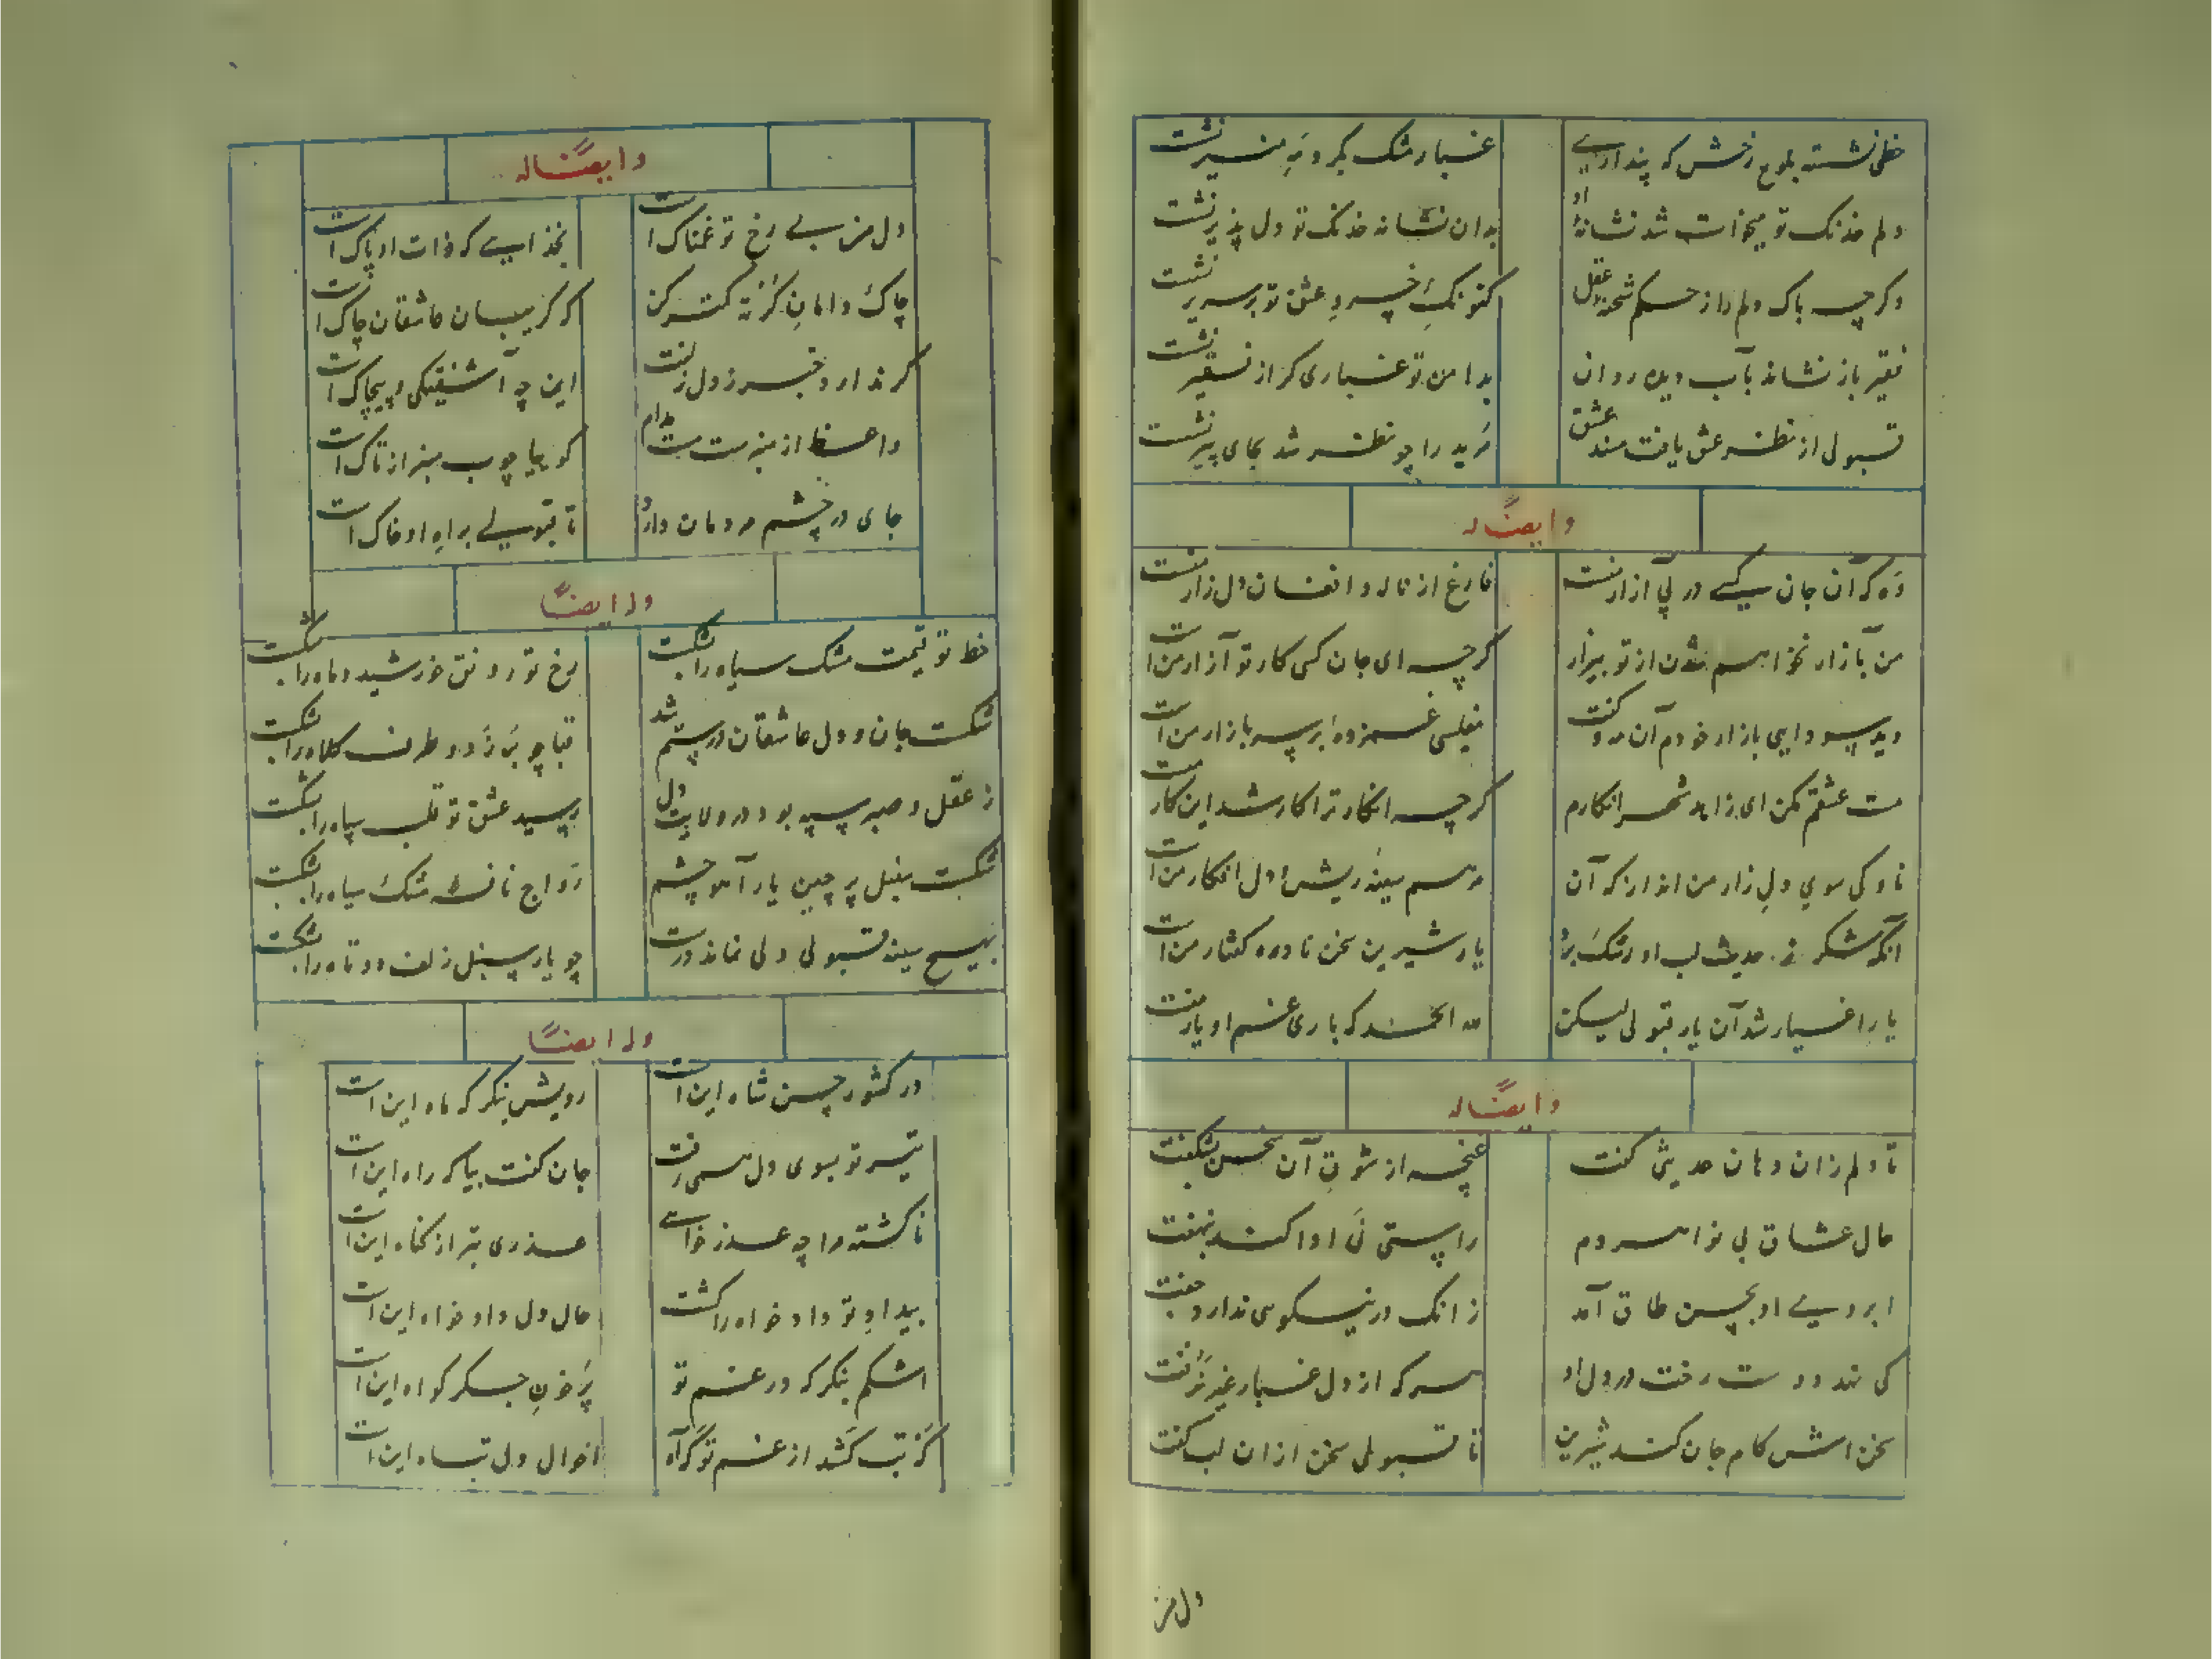 خطی نشسته بلوح رخش که پنداری
غبار مشک بگرد مه منیر نشست
دلم خدنک تو میخواست شد نشانهٔ او
بدان نشانه خدنک تو دل پذیر نشست
وکر چه باک دلم را ز حکم شحنهٔ عقل
کنونکه خسرو عشق تو بر سریر نشست
فقیر باز نشاند بآب دیده روان
بدامن تو غباری کر از فقیر نشست
قبولی از نظر عشق یافت مسند عشق
مرید را چو نظر شد بجای پیر نشست
وایضًا له
وه که آن جان کسی در پی آزار منست
فارغ از ناله و افغان دل زار منست
من بآزار نخواهم شدن از تو بیزار
کرچه ای جان کسی کار تو آزار من است
دید سودایی بازار خودم آن مه و کفت
مفلسی غمزده بر سر بازار من است
مست عشقم مکن ای زاهد شهر انکارم
کرچه انکار ترا کار شد این کار منست
ناوکی سوی دل زار من انداز که آن
مرهم سینهٔ ریش و دل افکار من است
آنکه شکر ز حدیث لب او رشک برد
یار شیرین سخن نادره کفتار من است
یار اغیار شد آن یار قبولی لیکن
لله الحمد که باری غم او یار منست
وایضًا له
تا دلم زان دهان حدیثی کفت
غنچه از شوق آن سخن بشکفت
حال عشاق بی نوا هر دم
راستی نی ادا کند بنهفت
ابروی او بحسن طاق آمد
زانک در نیکویی ندارد جفت
کی نهد دوست رخت در دل او
هر که از دل غبار غیر نرفت
سخن اش کام جان کند شیرین
تا قبولی سخن ازان لب کفت
دل من
وایضًا له
دل من بی رخ تو غمناک است
بخدایی که ذات او پاک است
چاک دامان کُرته کمتر کن
که کریبان عاشقان چاک است
کر ندارد خبر ز دل زلفت
این چه آشفتکی و پیچاک است
واعظ از منبر مست است مدام
کوییا چوب منبر از تاک است
جای در چشم مردمان دارد
تا قبولی براه او خاک است
وله ایضًا
خط تو قیمت مشک سیاه را بشکست
رخ تو رونق خورشید و ماه را بشکست
شکست جان و دل عاشقان درست شد
قبا چو بر زد و طرف کلاه را بشکست
ز عقل و صبر سپه بود در ولایت دل
رسید عشق تو قلب سپاه را بشکست
شکست سنبل پر چین یار آهو چشم
رواج نافهٔ مشک سیاه را بشکست
بهیچ سینه قبولی دلی نماند درست
چو یار سنبل زلف دوتاه را بشکست
وله ایضًا
در کشور حسن شاه این است
رویش بنکر که ماه این است
تیر تو بسوی دل همی رفت
جان کفت بیا که راه این است
ناکشته مرا چه عذر خواهی
عذری بتر از کناه این است
بیداد تو دادخواه را کشت
حال دل دادخواه این است
اشکم بنکر که در غم تو
پر خون جکر کواه این است
کر تب کشد از غم تو کر آه
احوال دل تباه این است